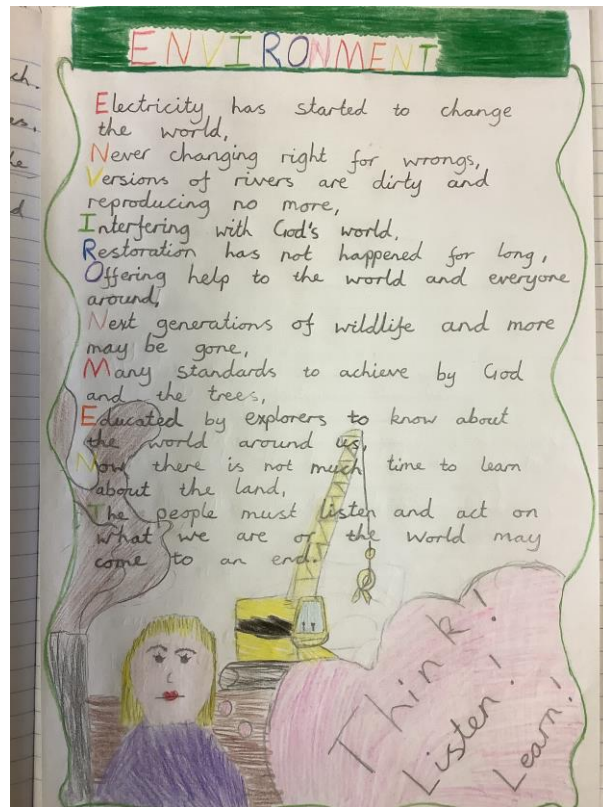 ch.
es.
le
d
ENVIRONMENT
Electricity has started to change
the world,
Never changing right for wrongs,
Versions of rivers are dirty and
reproducing no more,
Interfering with God's world,
Restoration has not happened for long,
Offering help to the world and everyone
around,
Next generations of wildlife and more
may be gone,
Many standards to achieve by God
and the trees,
Educated by explorers to know about
the world around us,
Now there is not much time to learn
about the land,
The people must listen and act on
what we are or the world may
come to an end.
Think!
Listen!
Learn!